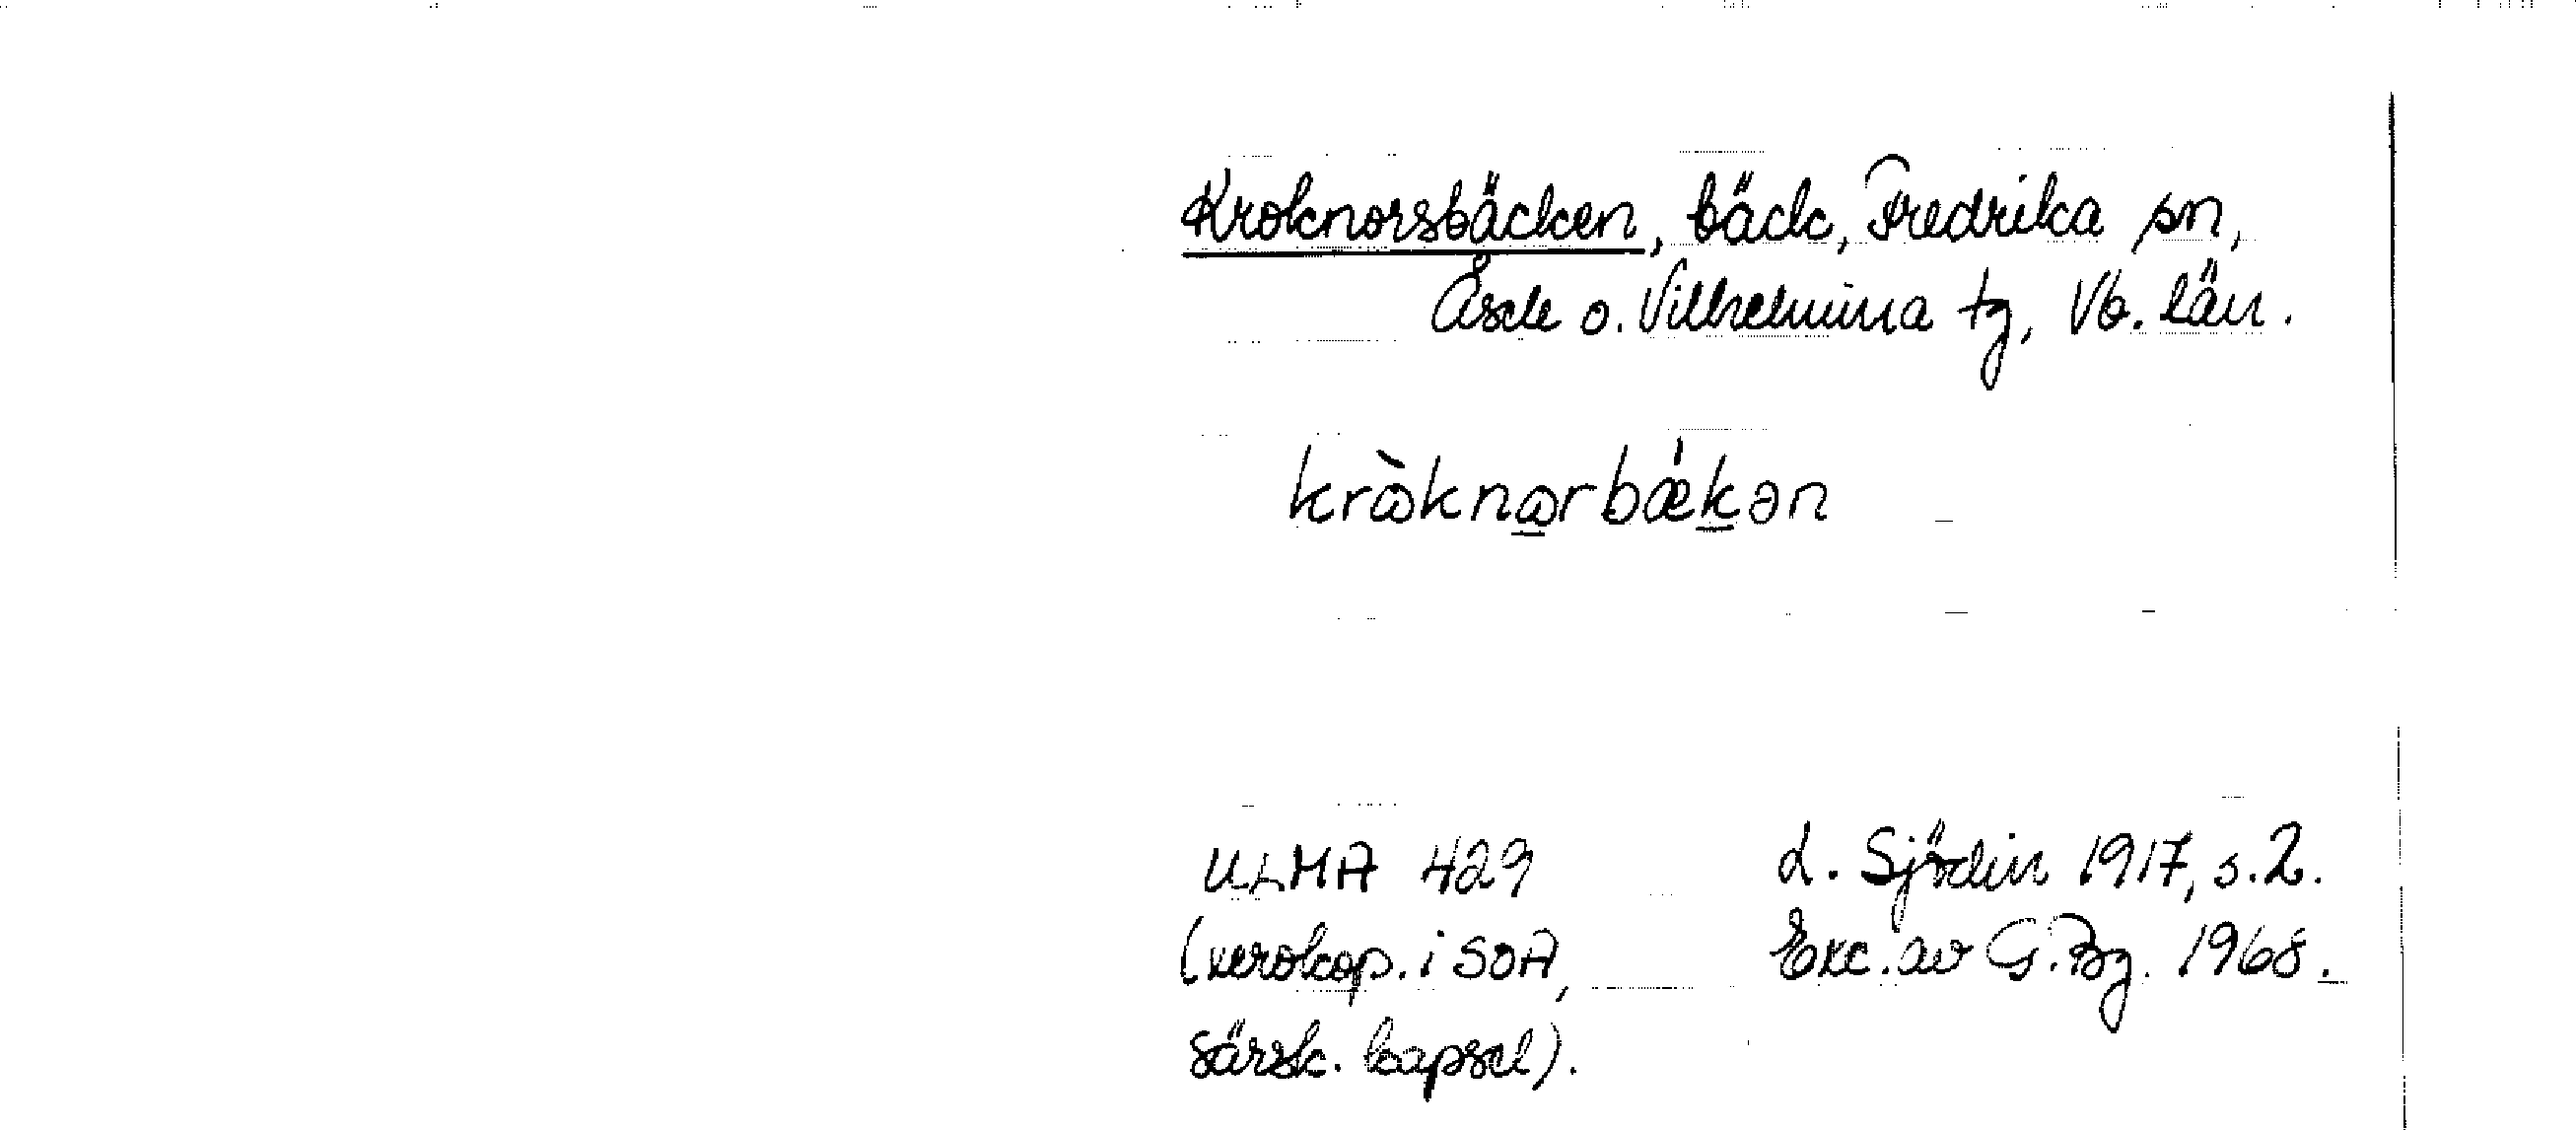 Kroknorsbäcken, bäck, Fredrika sn,
Åsele o. Vilhelmina tg, Vb. län.
kròknɷrbǽkən
ULMA 429
L. Sjödin 1917, s. 2.
(xerokop. i SOA,
Exc. av G. Bg. 1968.
särsk. kapsel).